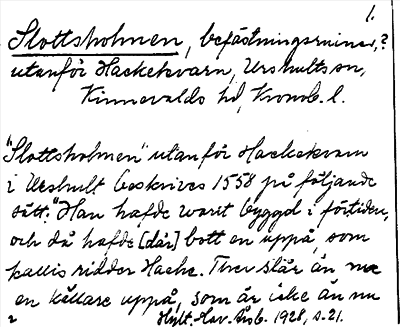 1.
Slottsholmen, befästningsruiner,?
utanför Hackekvarn, Urshults sn,
Kinnevalds hd, Kronob. l.
"Slottsholmen" utanför Hackekvarn
i Urshult beskrives 1558 på följande
sätt: "Han hafde warit byggd i förtiden,
och då hafde [där] bott en uppå, som
kallis ridder Hacke. Ther slår än
en källare uppå, som är icke än nu
Hylt.-Cav. Årsb. 1928, s. 21.